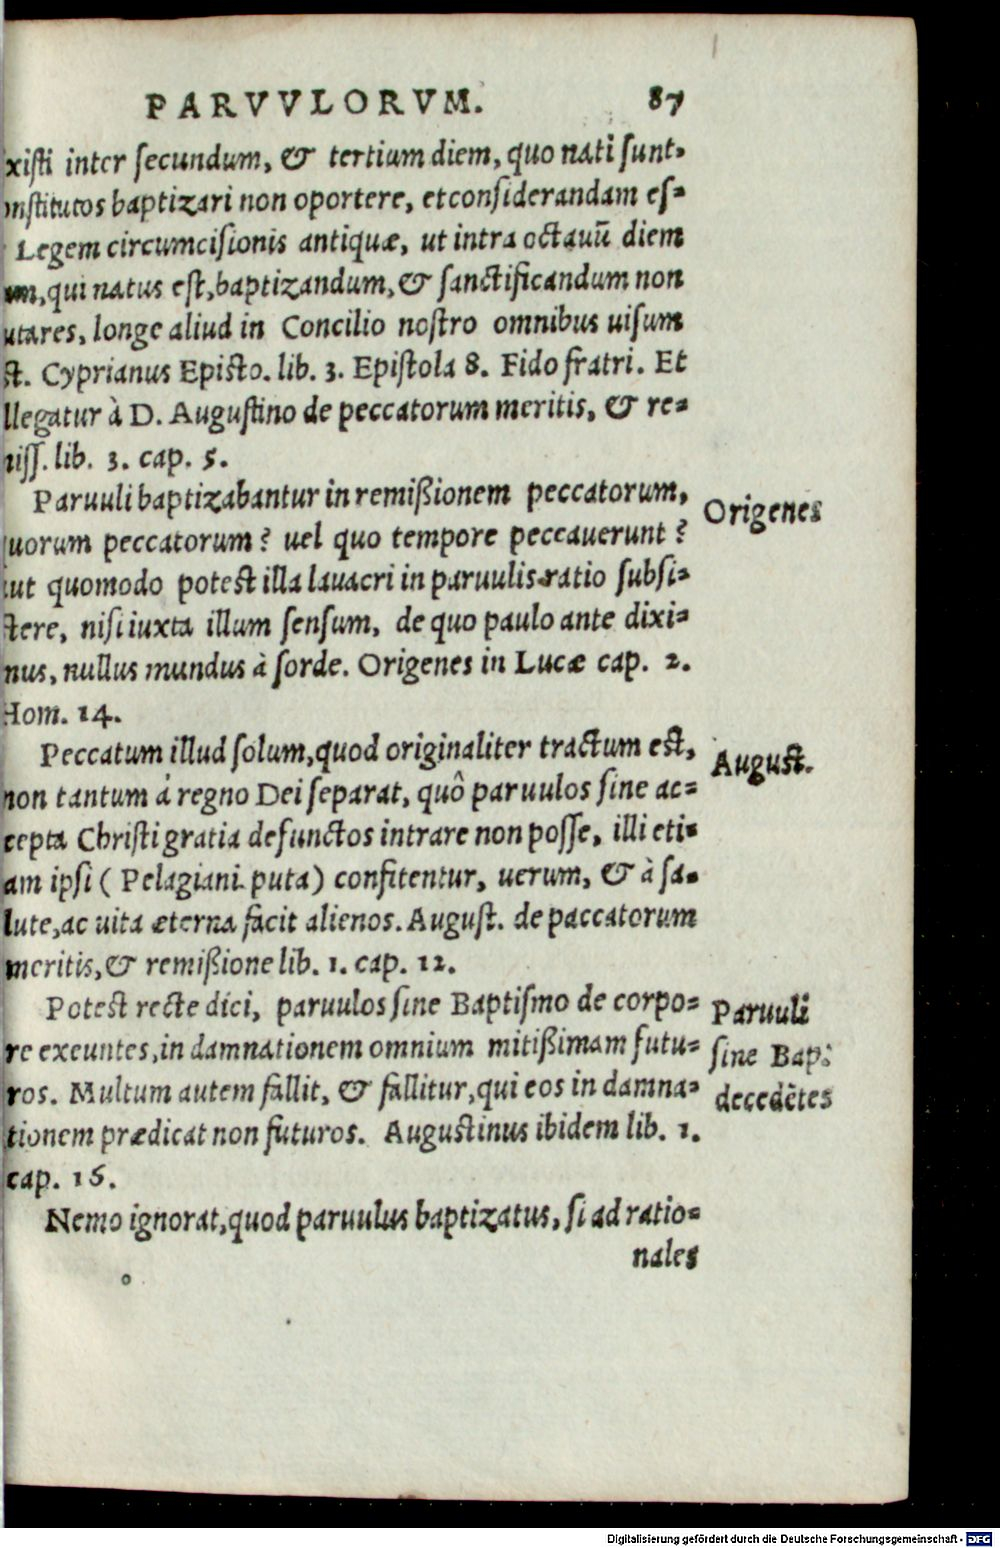 PARVVLORVM. 87
xisti inter secundum, & tertium diem, quo nati sunt-
onstitutos baptizari non oportere, et considerandam es-
Legem circumcisionis antiquæ, ut intra octauū diem
um, qui natus est, baptizandum, & sanctificandum non
utares, longe aliud in Concilio nostro omnibus uisum
st. Cyprianus Episto. lib. 3. Epistola 8. Fido fratri. Et
llegatur à D. Augustino de peccatorum meritis, & re-
niss. lib. 3. cap. 5.
Paruuli baptizabantur in remißionem peccatorum,
Origenes
quorum peccatorum? uel quo tempore peccauerunt?
aut quomodo potest illa lauacri in paruulis ratio subsi-
stere, nisi iuxta illum sensum, de quo paulo ante dixi-
nus, nullus mundus à sorde. Origenes in Lucæ cap. 2.
Hom. 14.
Peccatum illud solum, quod originaliter tractum est,
August.
non tantum á regno Dei separat, quô paruulos sine ac-
cepta Christi gratia defunctos intrare non posse, illi eti-
am ipsi (Pelagiani puta) confitentur, uerum, & à sa-
lute, ac uita æterna facit alienos. August. de paccatorum
meritis, & remißione lib. 1. cap. 12.
Potest recte dici, paruulos sine Baptismo de corpo-
Paruuli
re exeuntes, in damnationem omnium mitißimam futu-
sine Bap:
ros. Multum autem fallit, & fallitur, qui eos in damna-
decedētes
tionem prædicat non futuros. Augustinus ibidem lib. 1.
cap. 16.
Nemo ignorat, quod paruulus baptizatus, si ad ratio-
nales
Digitalisierung gefördert durch die Deutsche Forschungsgemeinschaft - DFG